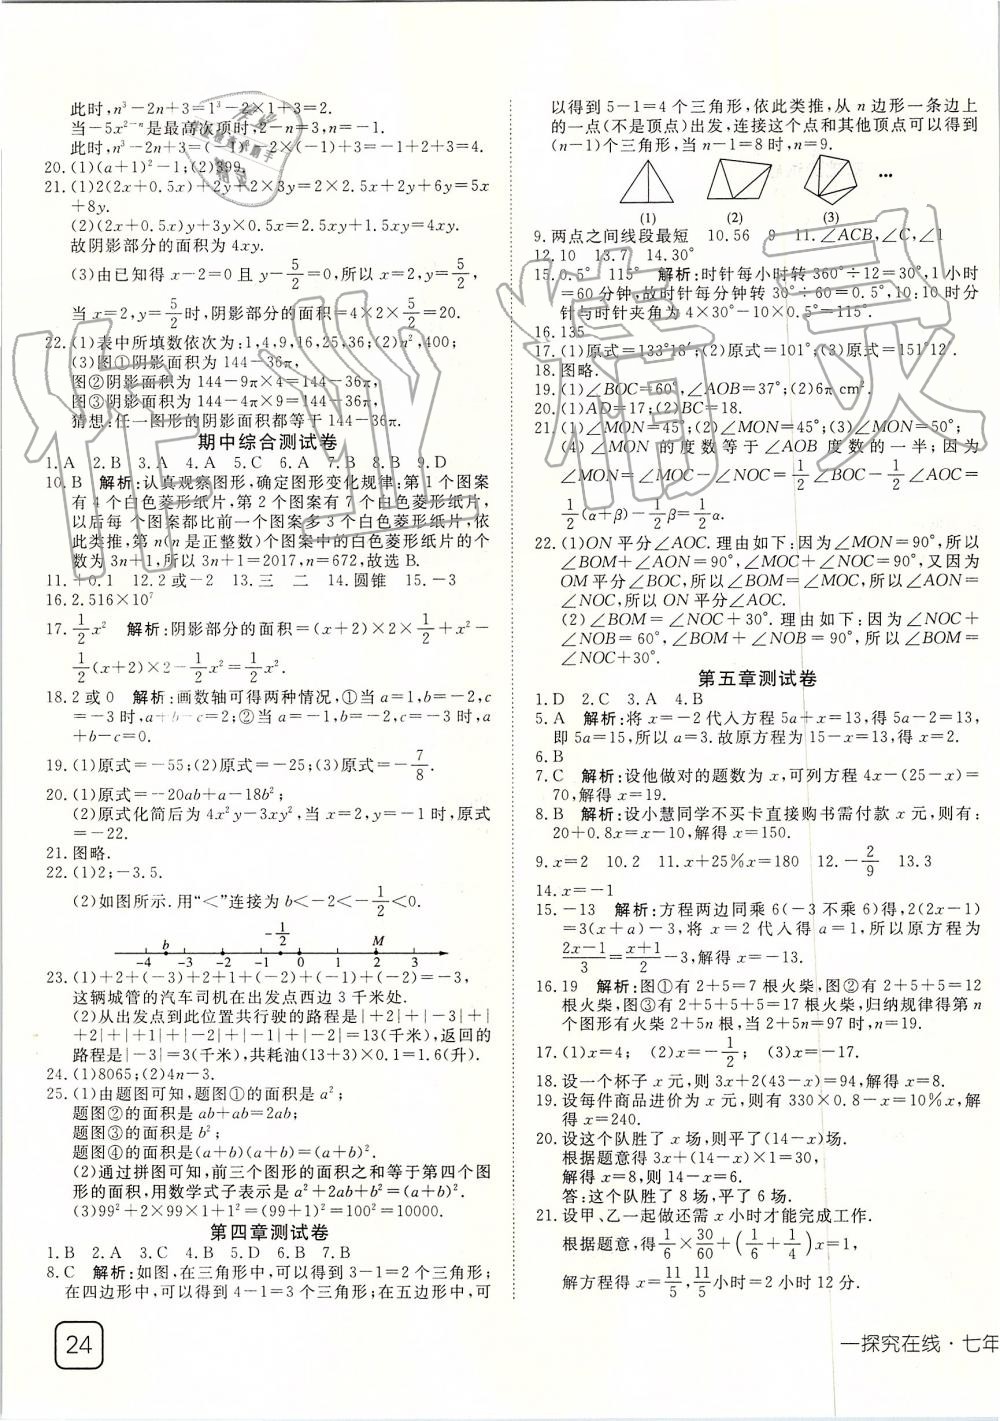 此时,n³-2n+3=1³-2×1+3=2.
当-5x²⁻ⁿ是最高次项时,2-n=3,n=-1.
此时,n³-2n+3=(-1)³-2×(-1)+3=-1+2+3=4.
20.(1)(a+1)²-1;(2)399.
21.(1)2(2x+0.5x)+2y+2×3y=4x+x+2y+6y=5x
+8y.
(2)(2x+0.5x)y+3y×0.5x=2.5xy+1.5xy=4xy.
故阴影部分的面积为 4xy.
(3)由已知得 x-2=0 且 y-5/2=0,所以 x=2,y=5/2,
当 x=2,y=5/2时,阴影部分的面积=4×2×5/2=20.
22.(1)表中所填数依次为:1,4,9,16,25,36;(2)n²,400;
(3)图①阴影面积为 144-36π,
图②阴影面积为 144-9π×4=144-36π,
图③阴影面积为 144-4π×9=144-36π.
猜想:任一图形的阴影面积都等于 144-36π.
期中综合测试卷
1.A 2.B 3.A 4.A 5.C 6.A 7.B 8.B 9.D
10.B 解析:认真观察图形,确定图形变化规律:第 1 个图案
有 4 个白色菱形纸片,第 2 个图案有 7 个白色菱形纸片,
以后每 个图案都比前一个图案多 3 个白色菱形纸片,依
此类推,第 n(n 是正整数)个图案中的白色菱形纸片的个
数为 3n+1,所以 3n+1=2017,n=672,故选 B.
11.+0.1 12.2 或-2 13.三 二 14.圆锥 15.-3
16.2.516×10⁷
17.1/2x² 解析:阴影部分的面积=(x+2)×2×1/2+x²-
1/2(x+2)×2-1/2x²=1/2x².
18.2 或 0 解析:画数轴可得两种情况,①当 a=1,b=-2,c
=-3 时,a+b-c=2;②当 a=-1,b=-2,c=-3 时,a
+b-c=0.
19.(1)原式=-55;(2)原式=-25;(3)原式=-7/8.
20.(1)原式=-20ab+a-18b²;
(2)原式化简后为 4x²y-3xy²,当 x=2,y=-1 时,原式
=-22.
21.图略.
22.(1)2;-3.5.
(2)如图所示.用“<”连接为 b<-2<-1/2<0.
b -1/2 M
-4 -3 -2 -1 0 1 2 3
23.(1)+2+(-3)+2+1+(-2)+(-1)+(-2)=-3,
这辆城管的汽车司机在出发点西边 3 千米处.
(2)从出发点到此位置共行驶的路程是|+2|+|-3|+|
+2|+|+1|+|-2|+|-1|+|-2|=13(千米),返回的
路程是|-3|=3(千米),共耗油(13+3)×0.1=1.6(升).
24.(1)8065;(2)4n-3.
25.(1)由题图可知,题图①的面积是 a²;
题图②的面积是 ab+ab=2ab;
题图③的面积是 b²;
题图④的面积是(a+b)(a+b)=(a+b)².
(2)通过拼图可知,前三个图形的面积之和等于第四个图
形的面积,用数学式子表示是 a²+2ab+b²=(a+b)².
(3)99²+2×99×1+1=(99+1)²=100²=10000.
第四章测试卷
1.B 2.A 3.C 4.B 5.D 6.B 7.B
8.C 解析:如图,在三角形中,可以得到 3-1=2 个三角形;
在四边形中,可以得到 4-1=3 个三角形;在五边形中,可
24
以得到 5-1=4 个三角形,依此类推,从 n 边形一条边上
的一点(不是顶点)出发,连接这个点和其他顶点可以得到
(n-1)个三角形,当 n-1=8 时,n=9.
…
(1) (2) (3)
9.两点之间线段最短 10.56 9 11.∠ACB,∠C,∠1
12.10 13.7 14.30°
15.0.5° 115° 解析:时针每小时转 360°÷12=30°,1 小时
=60 分钟,故时针每分钟转 30°÷60=0.5°,10:10 时分
针与时针夹角为 4×30°-10×0.5°=115°.
16.135
17.(1)原式=133°18′;(2)原式=101°;(3)原式=151°12′.
18.图略.
19.(1)∠BOC=60°,∠AOB=37°;(2)6π cm².
20.(1)AD=17;(2)BC=18.
21.(1)∠MON=45°;(2)∠MON=45°;(3)∠MON=50°;
(4)∠MON 的度数等于∠AOB 度数的一半;因为
∠MON=∠MOC-∠NOC=1/2∠AOC-1/2∠BOC=
1/2(α+β)-1/2β=1/2α.
22.(1)ON 平分∠AOC.理由如下:因为∠MON=90°,所以
∠BOM+∠AON=90°,∠MOC+∠NOC=90°,又因为
OM 平分∠BOC,所以∠BOM=∠MOC,所以∠AON=
∠NOC,所以 ON 平分∠AOC.
(2)∠BOM=∠NOC+30°.理由如下:因为∠NOC+
∠NOB=60°,∠BOM+∠NOB=90°,所以∠BOM=
∠NOC+30°.
第五章测试卷
1.D 2.C 3.A 4.B
5.A 解析:将 x=-2 代入方程 5a+x=13,得 5a-2=13,
即 5a=15,所以 a=3.故原方程为 15-x=13,得 x=2.
6.B
7.C 解析:设他做对的题数为 x,可列方程 4x-(25-x)=
70,解得 x=19.
8.B 解析:设小慧同学不买卡直接购书需付款 x 元,则有:
20+0.8x=x-10,解得 x=150.
9.x=2 10.2 11.x+25%x=180 12.-2/9 13.3
14.x=-1
15.-13 解析:方程两边同乘 6(-3 不乘 6)得,2(2x-1)
=3(x+a)-3,将 x=2 代入得 a=1,所以原方程为
2x-1/3=x+1/2-3,解得 x=-13.
16.19 解析:图①有 2+5=7 根火柴,图②有 2+5+5=12
根火柴,图③有 2+5+5+5=17 根火柴,归纳规律得第 n
个图形有火柴 2+5n 根,当 2+5n=97 时,n=19.
17.(1)x=4; (2)x=-1/2; (3)x=-17.
18.设一个杯子 x 元,则 3x+2(43-x)=94,解得 x=8.
19.设每件商品进价为 x 元,则有 330×0.8-x=10%x,解
得 x=240.
20.设这个队胜了 x 场,则平了(14-x)场.
根据题意得 3x+(14-x)×1=30,
解得 x=8,则 14-x=6.
答:这个队胜了 8 场,平了 6 场.
21.设甲、乙一起做还需 x 小时才能完成工作.
根据题意,得1/6×30/60+(1/6+1/4)x=1,
解方程得 x=11/5,11/5小时=2 小时 12 分.
一探究在线·七年